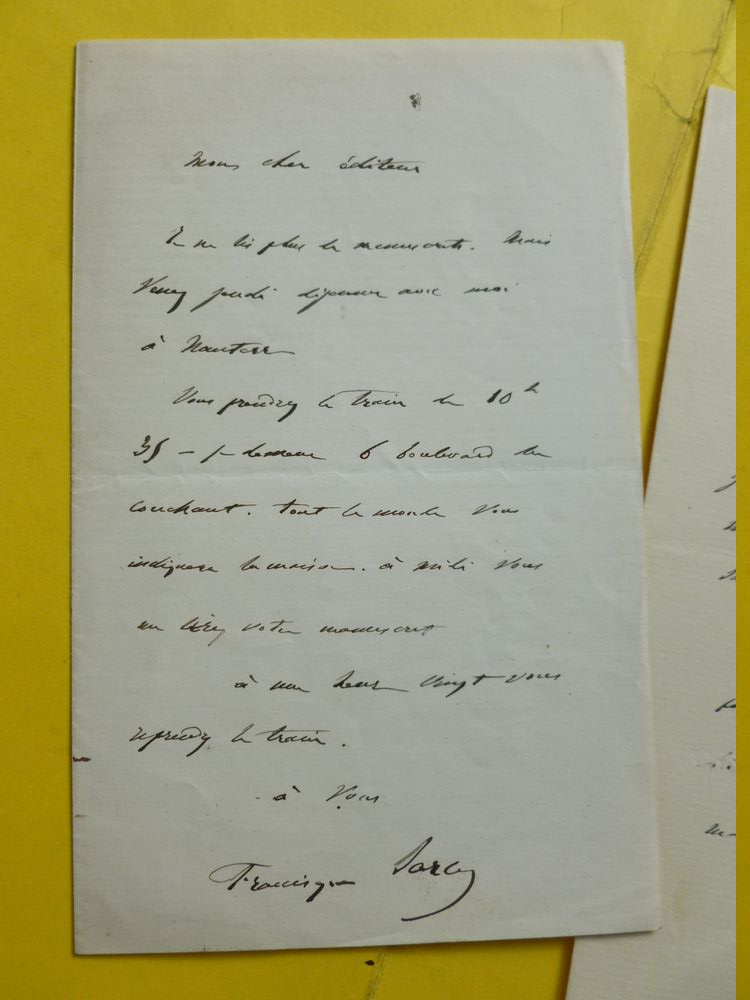 Mon cher éditeur
Je ne lis plus de manuscrits. Mais
Venez jeudi déjeuner avec moi
à Nanterre
Vous prendrez le train de 10 h
35 - je demeure 6 boulevard du
couchant. tout le monde Vous
indiquera la maison. à midi Vous
me lirez votre manuscrit
à une heure vingt vous
reprendrez le train.
à Vous
Francisque Sarcey